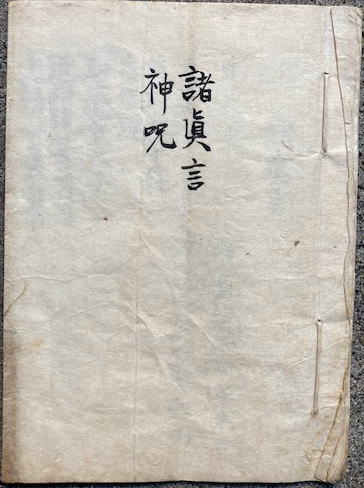 諸眞言
神呪